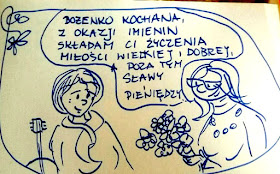 BOŻENKO KOCHANA,
Z OKAZJI IMIENIN
SKŁADAM CI ŻYCZENIA
MIŁOŚCI WIELKIEJ I DOBREJ,
POZA TYM
SŁAWY
PIENIĘDZY